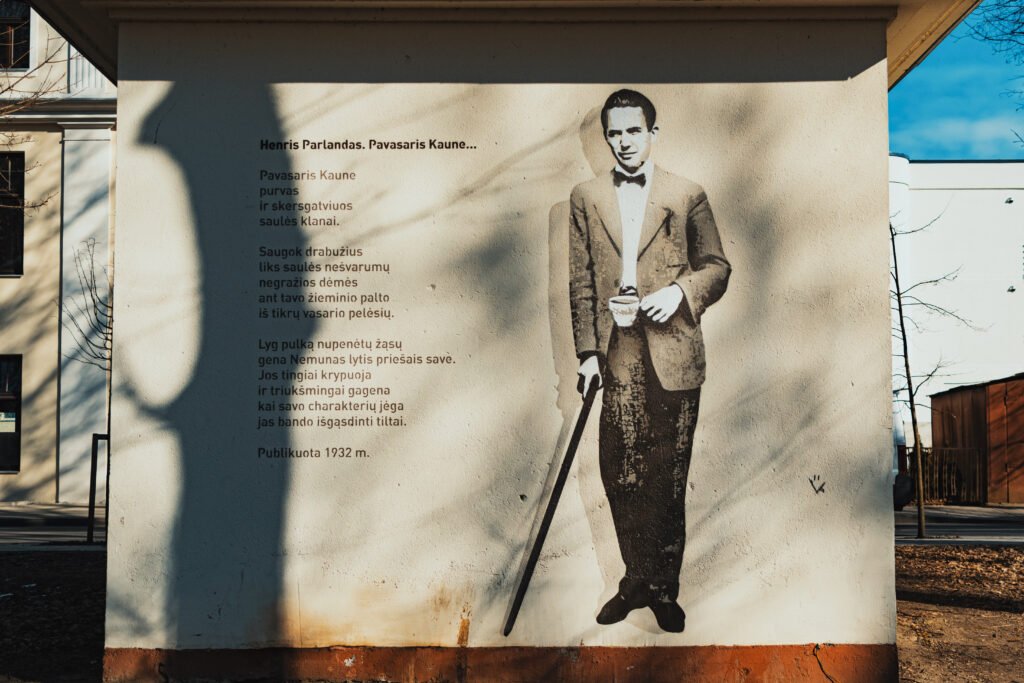 Henris Parlandas. Pavasaris Kaune...
Pavasaris Kaune
purvas
ir skersgatviuos
saulės klanai.
Saugok drabužius
liks saulės nešvarumų
negražios dėmės
ant tavo žieminio palto
iš tikrų vasario pelėsių.
Lyg pulką nupenėtų žąsų
gena Nemunas lytis priešais savė.
Jos tingiai krypuoja
ir triukšmingai gagena
kai savo charakterių jėga
jas bando išgąsdinti tiltai.
Publikuota 1932 m.